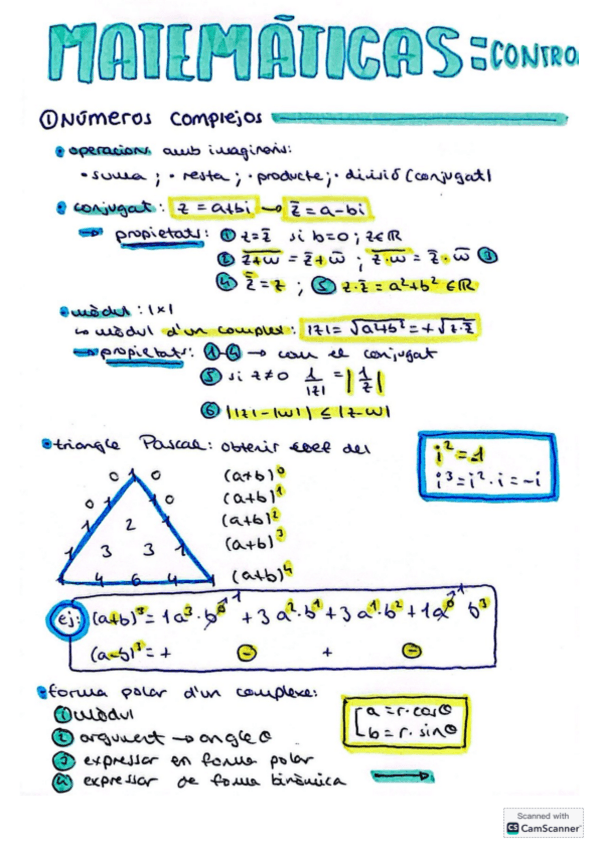 MATEMÁTICAS: CONTRO
① Números complejos
operacions amb imaginaris:
• suma ; • resta ; • producte ; • divisió (conjugat)
conjugat : z = a+bi → z̄ = a-bi
→ propietats: ① z=z̄ si b=0 ; z∈ℝ
② \overline{z+w} = z̄ + w̄ ; \overline{z·w} = z̄ · w̄ ③
④ z̿ = z ; ⑤ z·z̄ = a²+b² ∈ℝ
mòdul : |x|
↳ mòdul d'un complex : |z| = √(a²+b²) = +√(z·z̄)
→ propietats: ①-④ → com el conjugat
⑤ si z≠0 1/|z| = |1/z|
⑥ ||z|-|w|| ≤ |z-w|
triangle Pascal: obtenir coef del
i² = -1
i³ = i²·i = -i
0 1 0 (a+b)⁰
0 1 1 0 (a+b)¹
1 2 1 (a+b)²
1 3 3 1 (a+b)³
1 4 6 4 1 (a+b)⁴
ej: (a+b)³ = 1a³·b⁰ ↗1 + 3a²·b¹ + 3a¹·b² + 1a⁰ ↗1 b³
(a-b)³ = + - + -
forma polar d'un complexe:
① mòdul
② argument → angle θ
③ expressar en forma polar
④ expressar de forma binòmica →
a = r·cosθ
b = r·sinθ
Scanned with
CS CamScanner